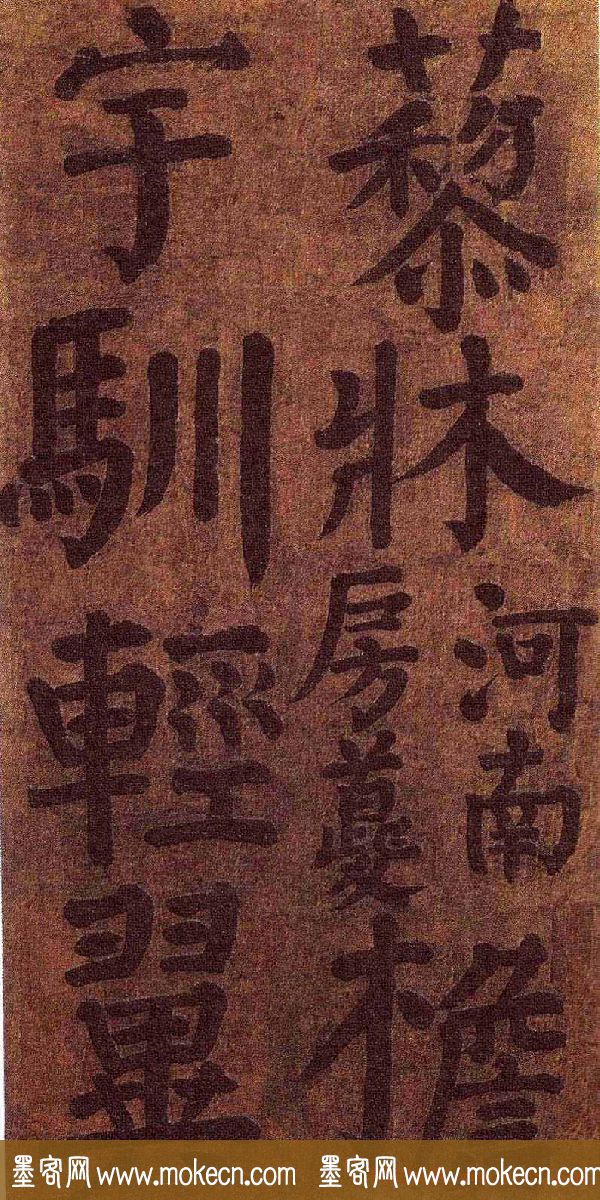 藜牀
河南
房夔
檐
宇馴輕翼
墨客网 www.mokecn.com 墨客网 www.mokecn.com